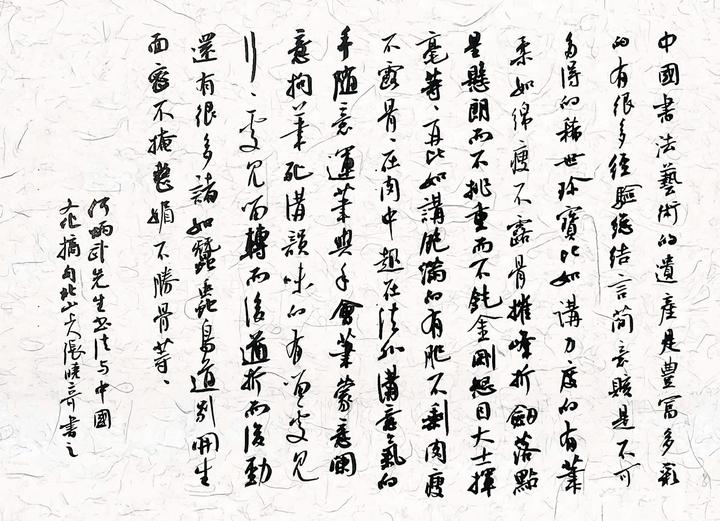 中國書法藝術的遺產是豐富多彩
的有很多經驗總結言简意賅是不可
多得的稀世珍寶比如講力度的有筆
柔如綿瘦不露骨摧峰折劒落點
星懸朗而不挑重而不鈍金剛怒目大士揮
毫等、再比如講飽滿的有肥不剩肉瘦
不露骨、在肉中趣在法外講意氣的
手隨意運筆與手會筆蒙意闌
意拘筆死講韻味的有
見 轉而後遒折而後勁
還有很多諸如蠶 鳥道別開生
面 不掩 媚不勝骨等、
何炳武先生書法與中國
文化摘句北山人張曉奇書之